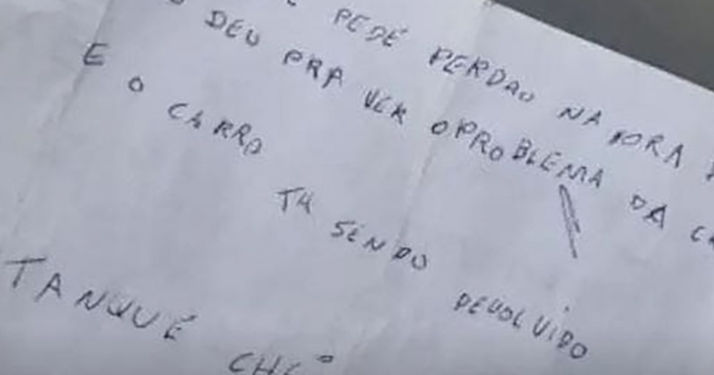 PEDE PERDAO NA HORA
DEU PRA VER O PROBLEMA DA
E O CARRO TA SENDO DEVOLVIDO
TANQUE